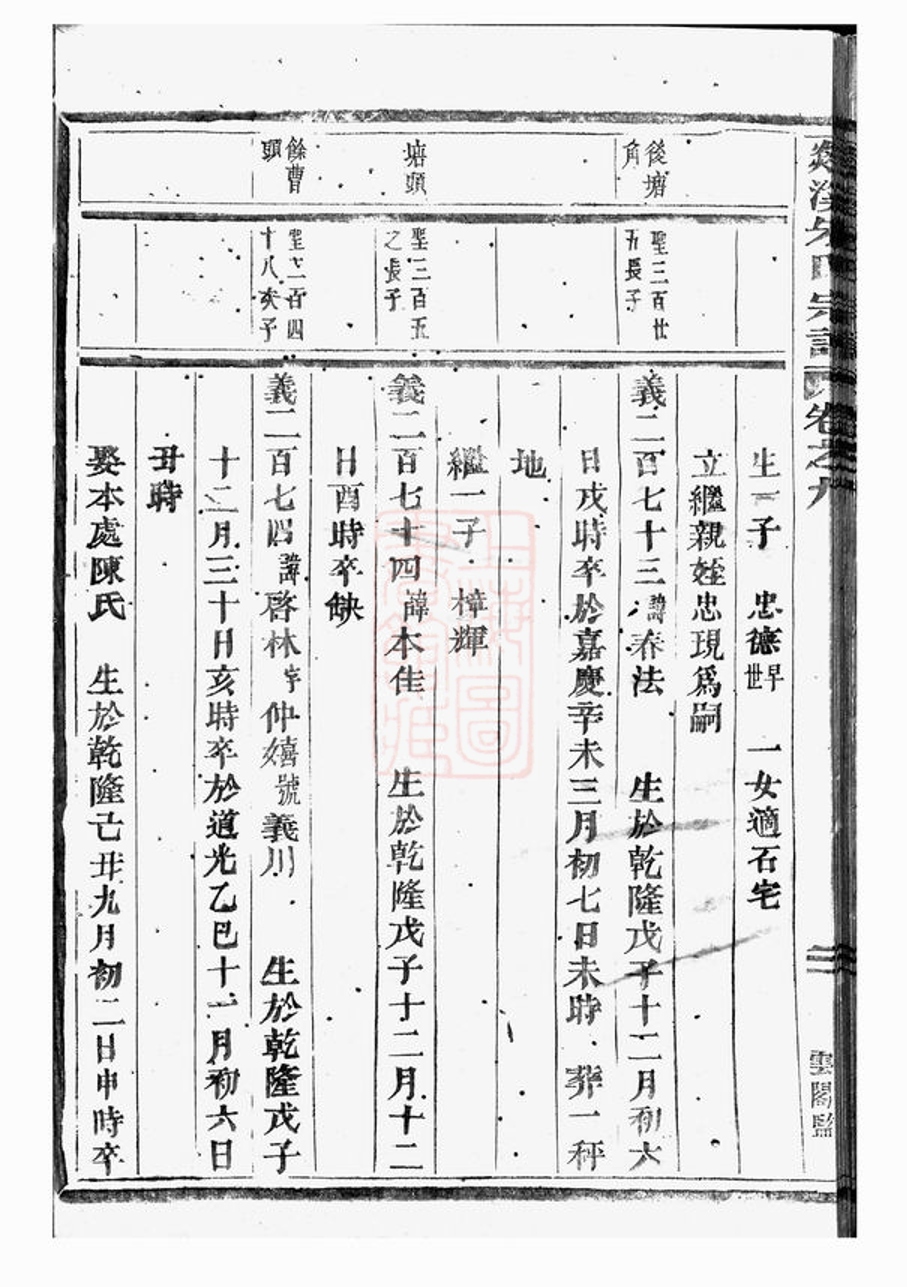 氏宗譜 卷之九
雲閣監
生一子 忠德早世 一女適石宅
立繼親姪忠現爲嗣
後塘角
聖三百廿五長子
義二百七十三諱春法 生於乾隆戊子十二月初六
日戌時卒於嘉慶辛未三月初七日未時 葬一秤
地
繼一子 樟輝
塘頭
聖三百五之長子
義二百七十四諱本佳 生於乾隆戊子十二月十二
日酉時卒缺
餘曹頭
聖二百四十八次子
義二百七四諱啓林字仲嬉號義川 生於乾隆戊子
十二月三十日亥時卒於道光乙巳十一月初六日
丑時
娶本處陳氏 生於乾隆己丑九月初二日申時卒